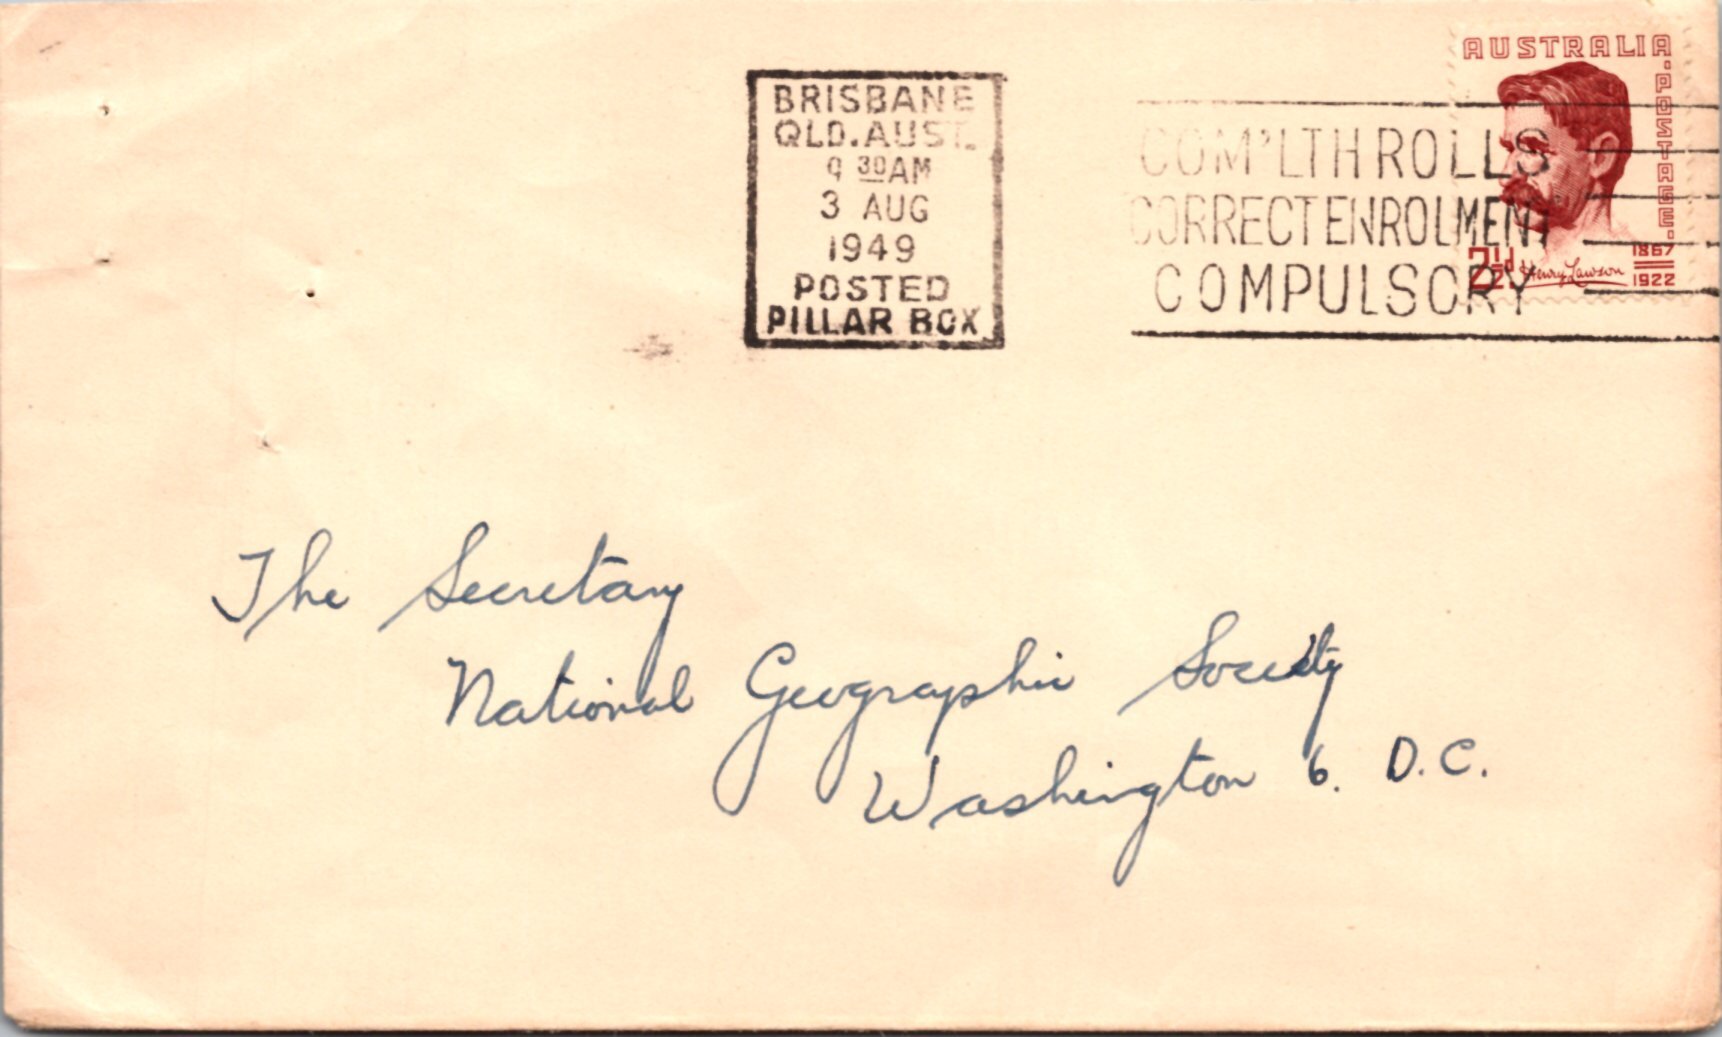 BRISBANE
QLD. AUST.
9 30 AM
3 AUG
1949
POSTED
PILLAR BOX
COM'LTH ROLLS
CORRECT ENROLMENT
COMPULSORY
AUSTRALIA
·POSTAGE·
2½d
Henry Lawson
1867
1922
The Secretary
National Geographic Society
Washington 6. D.C.